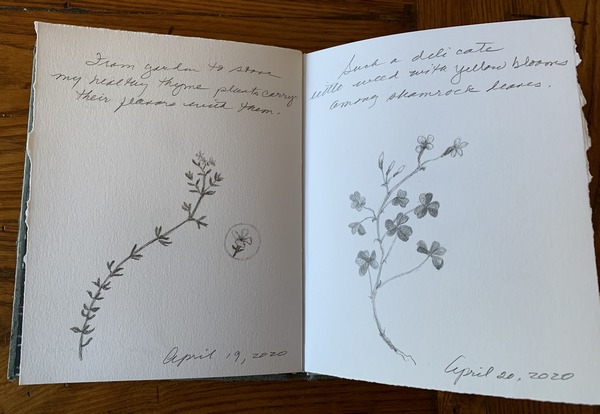 From garden to stove
my healthy thyme plants carry
their flavors with them.
April 19, 2020
Such a delicate
little weed with yellow blooms
among shamrock leaves.
April 20, 2020